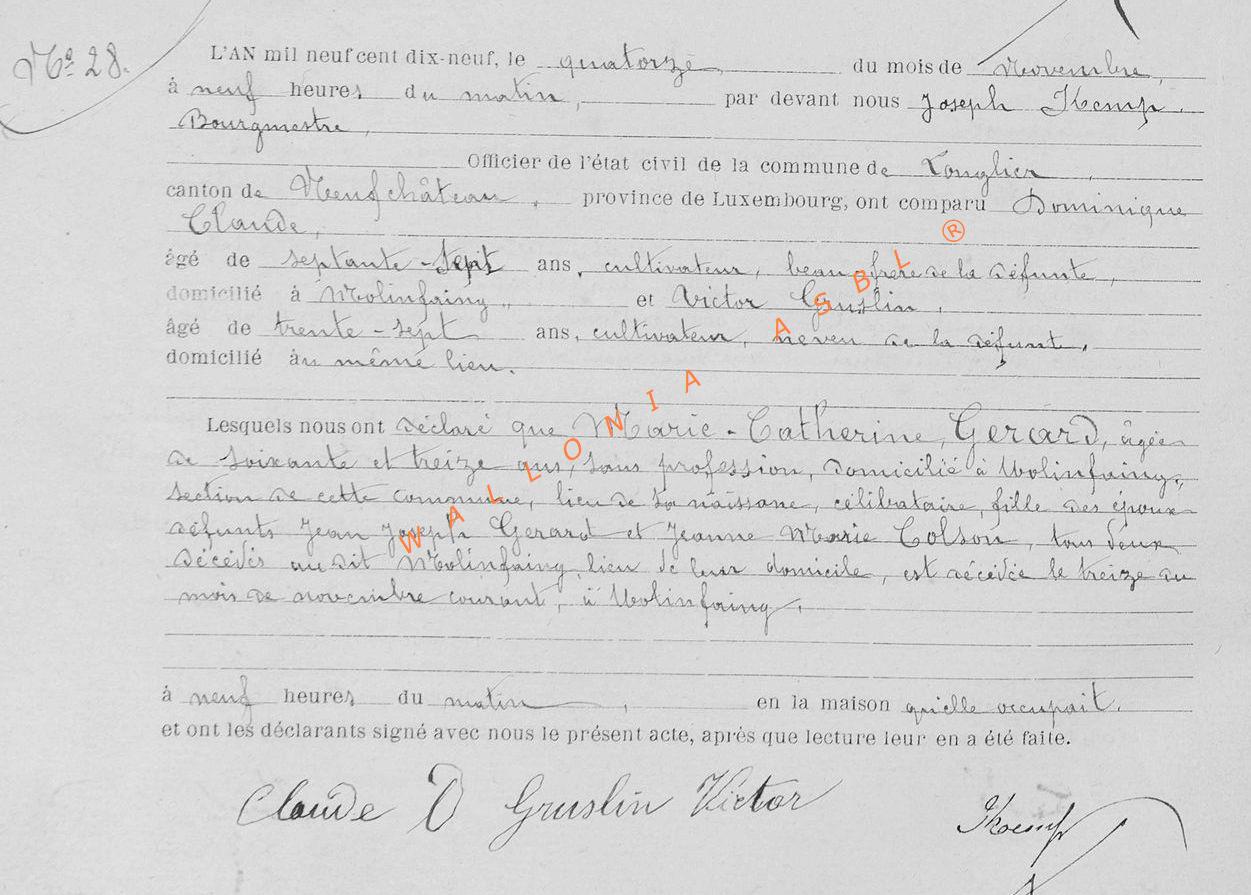 Nº 28.
L'AN mil neuf cent dix-neuf, le quatorze du mois de Novembre,
à neuf heures du matin, par devant nous Joseph
Bourgmestre,
Officier de l'état civil de la commune de Longlier
canton de Neufchâteau, province de Luxembourg, ont comparu Dominique
Claude,
âgé de septante-sept ans, cultivateur, beau-frère de la défunte,
domicilié à Molinfaing, et Victor Gruslin,
âgé de trente-sept ans, cultivateur, neveu de la défunt,
domicilié au même lieu.
Lesquels nous ont déclaré que Marie-Catherine, Gerard, âgée
de soixante et treize ans, sans profession, domicilié à Molinfaing,
section de cette commune, lieu de sa naissance, célibataire, fille des époux
défunts Jean Joseph Gerard et Jeanne Marie Colson, tous deux
décédés au dit Molinfaing, lieu de leur domicile, est décédée le treize du
mois de novembre courant, à Molinfaing,
à neuf heures du matin, en la maison qu'elle occupait.
et ont les déclarants signé avec nous le présent acte, après que lecture leur en a été faite.
Claude D Gruslin Victor
WALLONIA ASBL ®